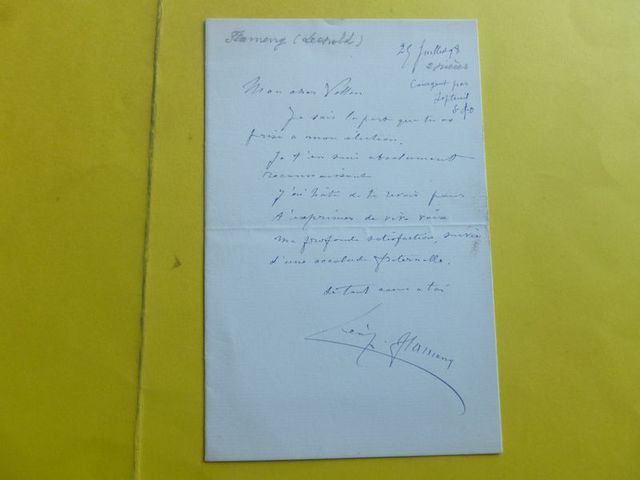 Flameng (Leopold)
25 Juillet 98
Courgent par
Septeuil
S & O
Mon cher
Je sais la part que tu as
prise à mon élection.
Je t'en suis absolument
reconnaissant
J'ai hâte de te revoir pour
t'exprimer de vive voix
ma profonde satisfaction, suivie
d'une accolade fraternelle.
de tout coeur a toi
Léop. Flameng